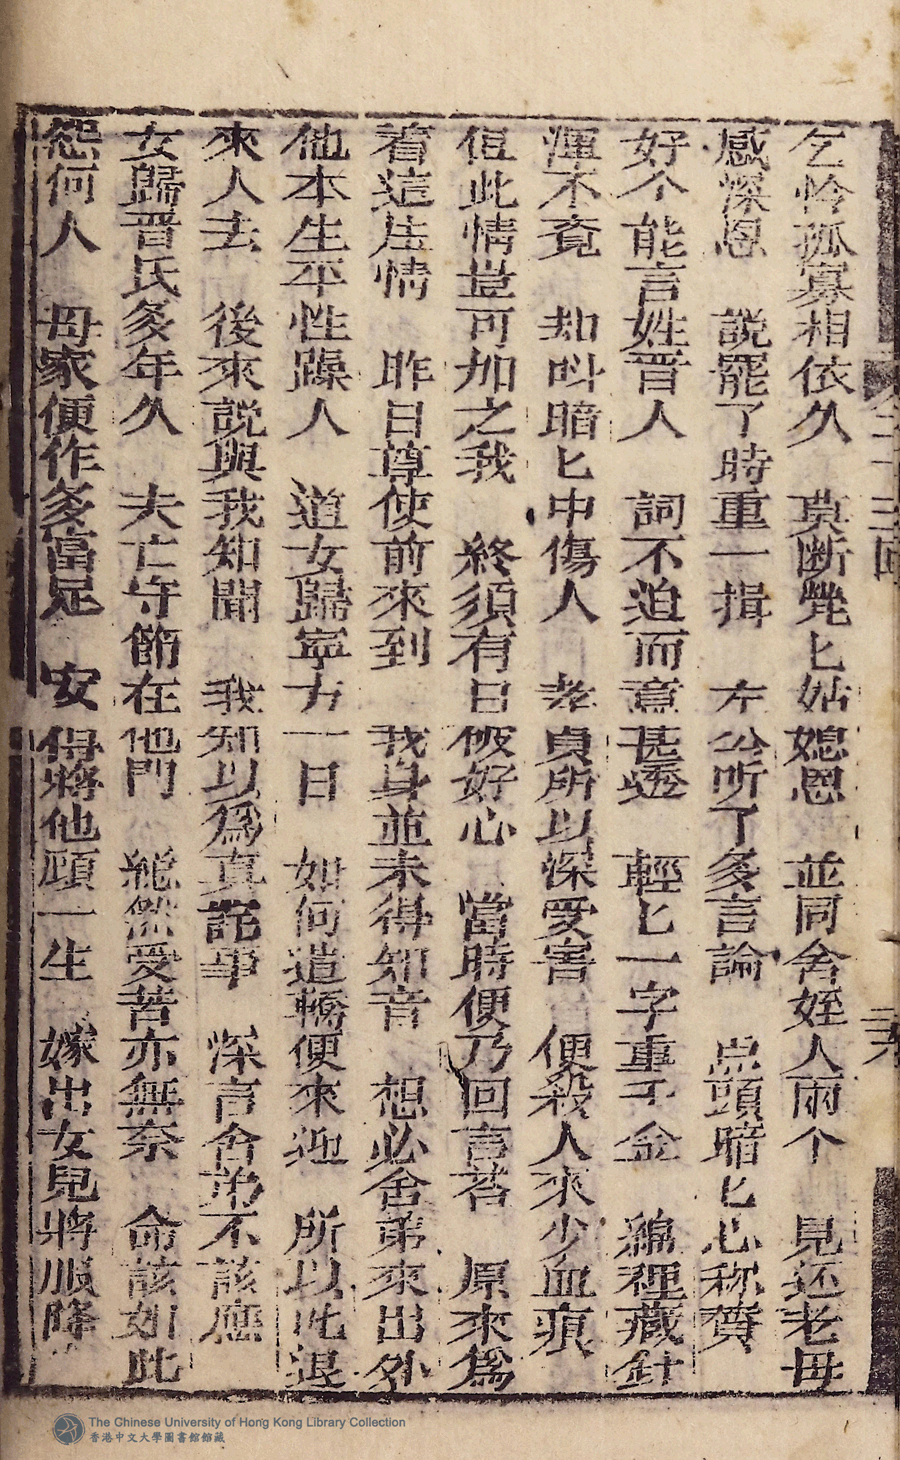 乞怜孤寡相依久　莫断㷀匕姑媳恩　並同舍姪人兩个　見还老母
感深恩　說罷了時重一揖　左公听了多言論　点頭暗匕心称賛
好个能言姓晋人　詞不迫而意甚透　輕匕一字重千金　綿裡藏針
渾不竟　却叫暗匕中傷人　孝貞所以深受害　便殺人來少血痕
但此情豈可加之我　終須有日儆好心　當時便乃回言荅　原來爲
着這庄情　昨日尊使前來到　我身並未得知音　想必舍弟來出外
他本生平性躁人　道女歸寧方一日　如何遣轎便來迎　所以叱退
來人去　後來説與我知聞　我知以爲真詫事　深言舍弟不該應
女歸晋氏多年久　夫亡守節在他門　縱然受苦亦無奈　命該如此
怨何人　母家便作多富足　安得將他頋一生　嫁出女兒將服降
二十三回
The Chinese University of Hong Kong Library Collection
香港中文大學圖書館館藏